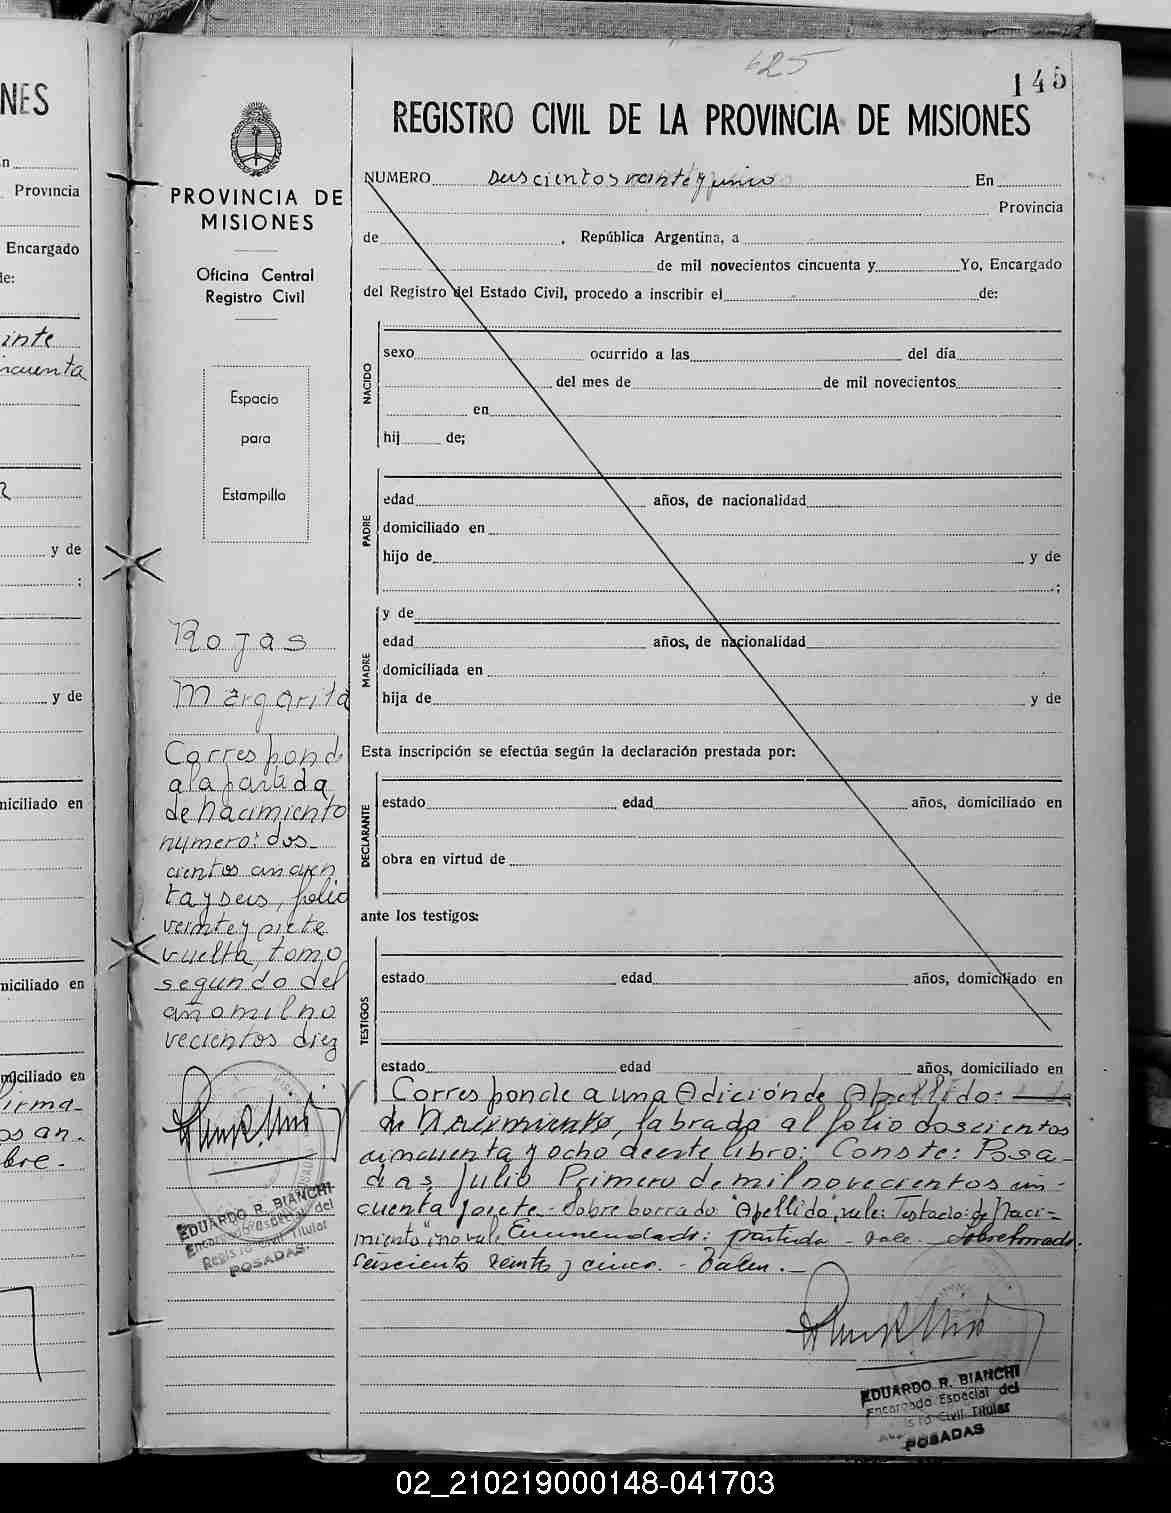 NES
n
Provincia
Encargado
de:
inte
ncuenta
y de
:
y de
niciliado en
niciliado en
niciliado en
firma-
os an.
bre.-
625
145
REGISTRO CIVIL DE LA PROVINCIA DE MISIONES
PROVINCIA DE
MISIONES
Oficina Central
Registro Civil
Espacio
para
Estampilla
Rojas
Margarita
Corresponde
a la partida
de nacimiento
numero: dos-
cientos cincuen
ta y seis, folio
veinte y siete
vuelta, tomo
segundo del
año mil no
vecientos diez
EDUARDO R. BIANCHI
Encargado Especial del
Registro Civil Titular
POSADAS
NUMERO En
Provincia
de , República Argentina, a
de mil novecientos cincuenta y Yo, Encargado
del Registro del Estado Civil, procedo a inscribir el de:
NACIDO
sexo ocurrido a las del día
del mes de de mil novecientos
en
hij de;
PADRE
edad años, de nacionalidad
domiciliado en
hijo de y de
;
MADRE
y de
edad años, de nacionalidad
domiciliada en
hija de y de
Esta inscripción se efectúa según la declaración prestada por:
DECLARANTE
estado edad años, domiciliado en
obra en virtud de
ante los testigos:
TESTIGOS
estado edad años, domiciliado en
estado edad años, domiciliado en
Corresponde a una Adición de Apellido:
de Nacimiento, labrada al folio doscientos
cincuenta y ocho de este libro: Conste: Posa-
das Julio Primero de mil novecientos cin-
cuenta y siete.- Sobre borrado "Apellido", vale: Testado: de Naci-
miento" no vale Enmendado: partida - vale. Sobreborrado:
seiscientos veinte y cinco. - Valen.-
EDUARDO R. BIANCHI
Encargado Especial del
Registro Civil Titular
POSADAS
02_210219000148-041703